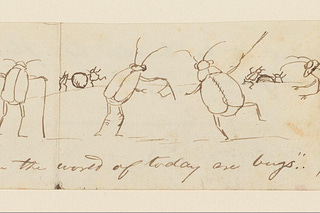 the world of today are bugs"..